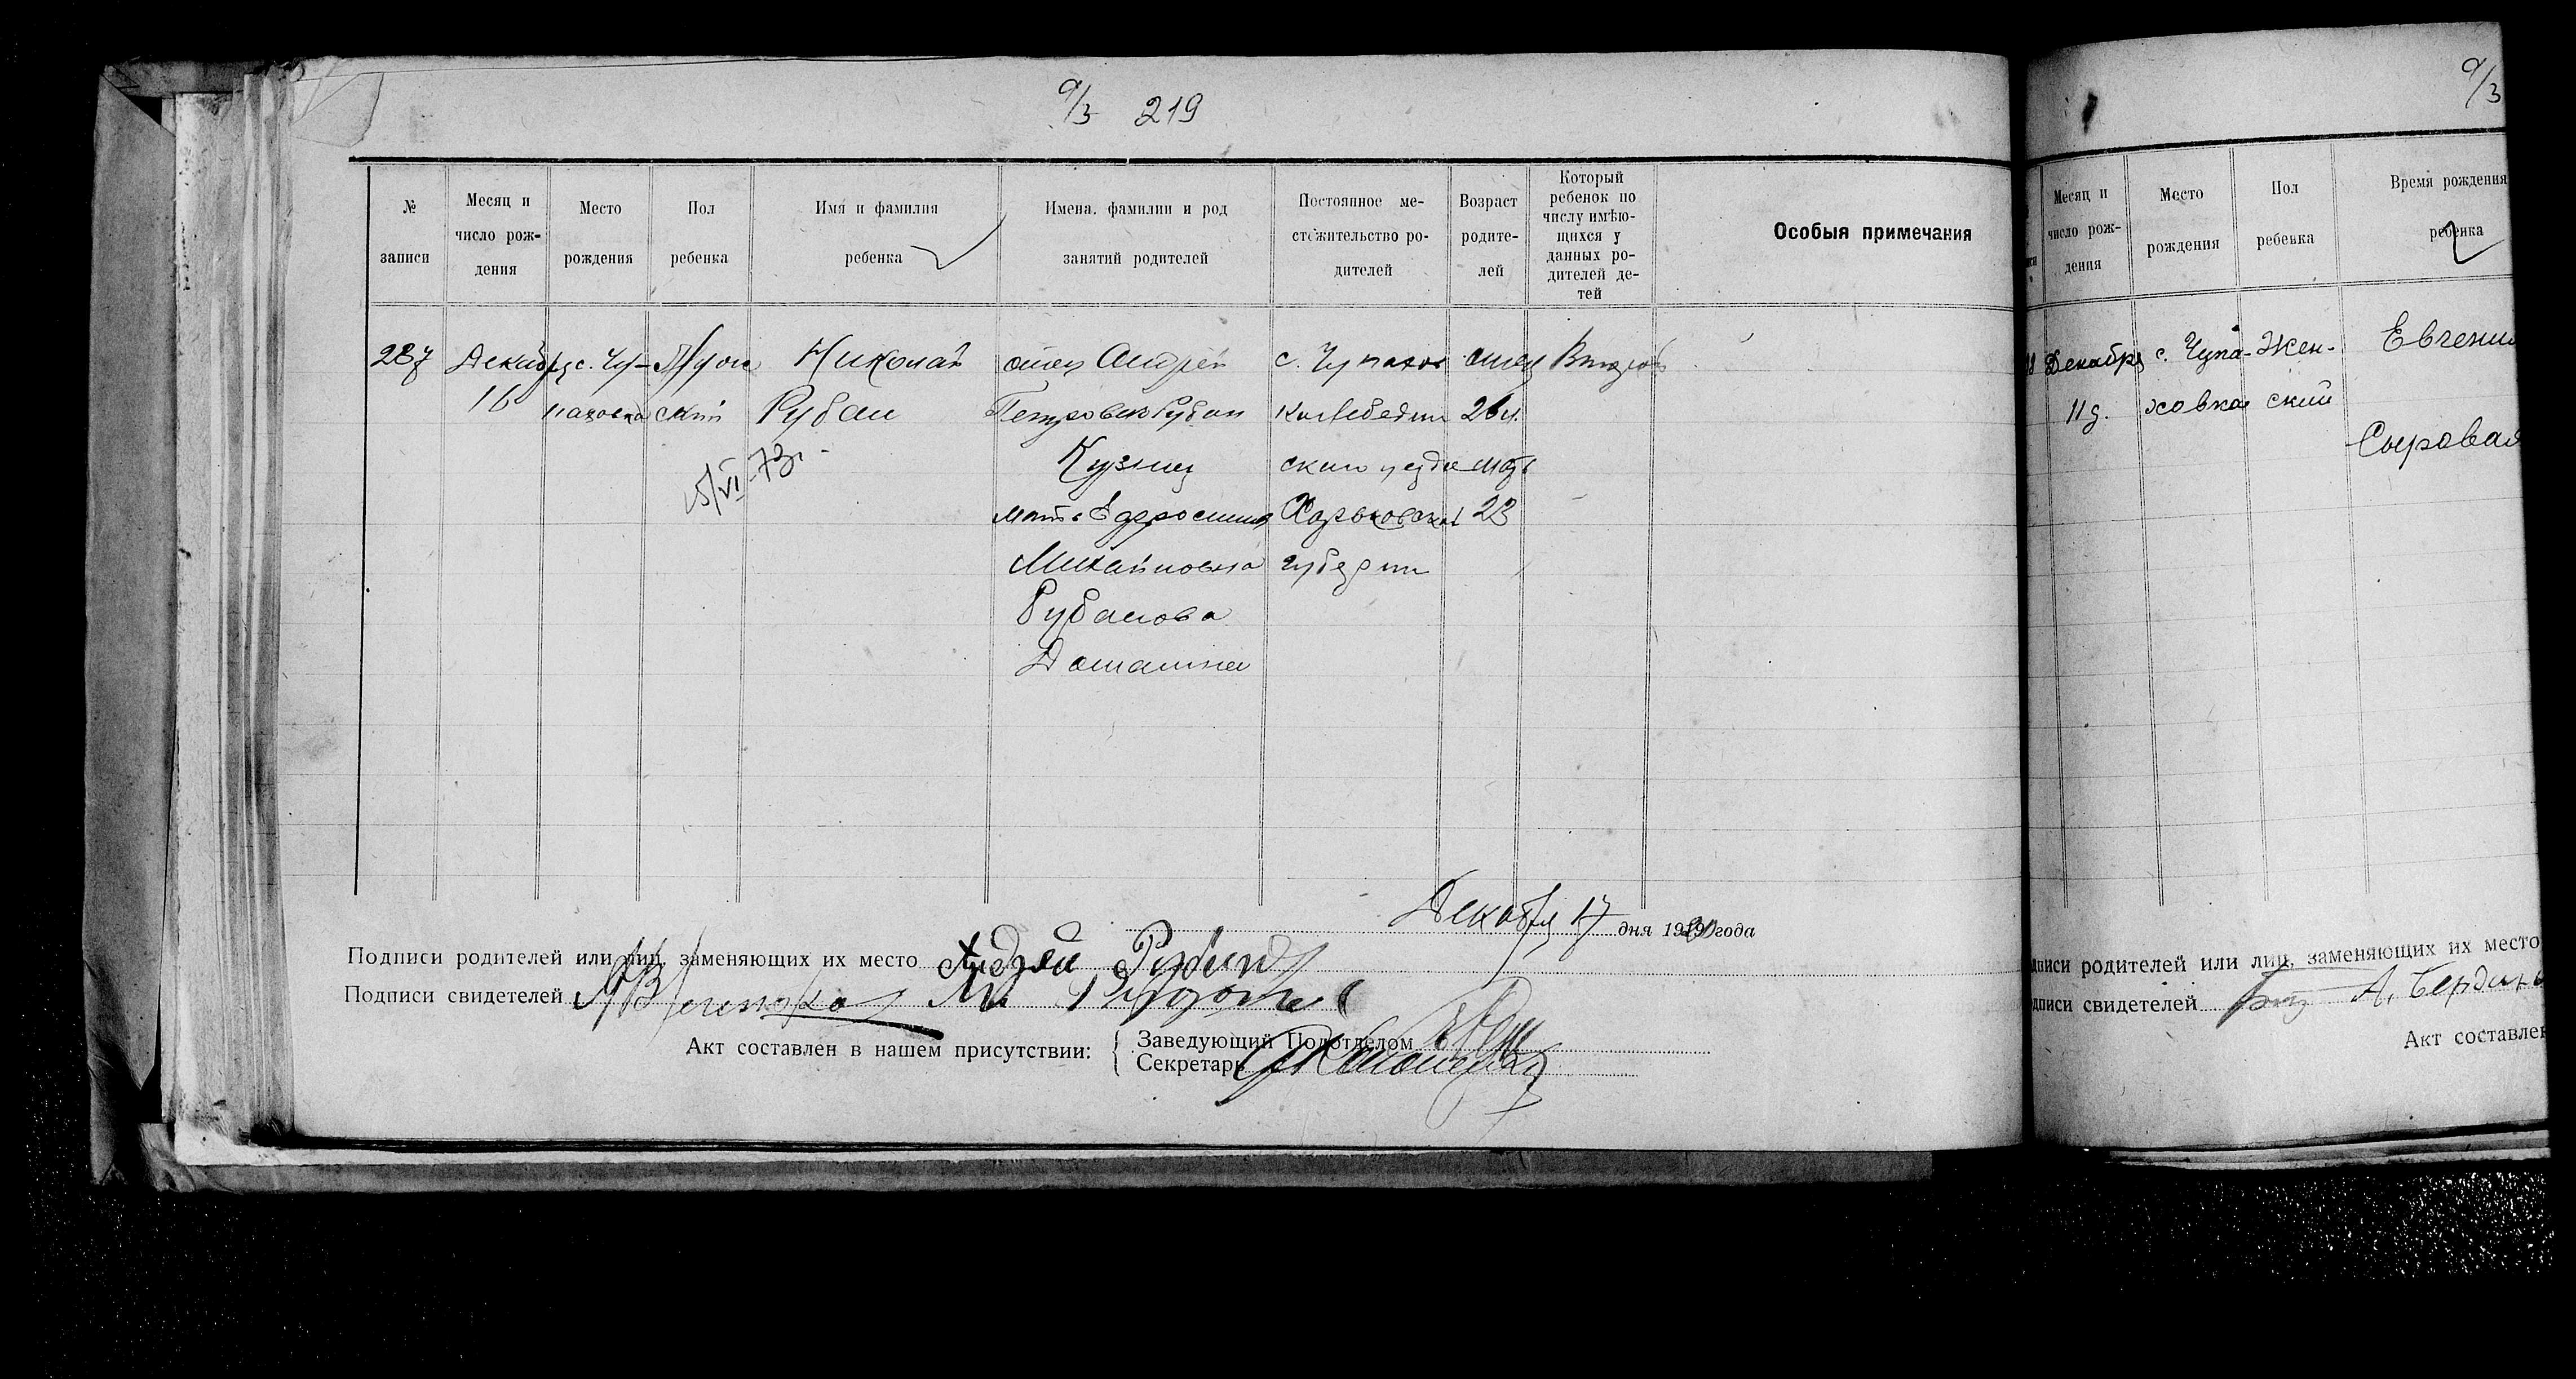 9/3 219
№ записи
Месяц и число рождения
Место рождения
Пол ребенка
Имя и фамилия ребенка
Имена, фамилии и род занятий родителей
Постоянное местожительство родителей
Возраст родителей
Который ребенок по числу имѣющихся у данных родителей детей
Особыя примечания
287 Декабря с. Чу- Муж Николай отец Андрей с. Чупахов отец Второй
16 паховка ский Рубан Петрович Рубан ка Лебедин 26 л.
15/VI-73г. Кузнец ский уезда мать
мать Ефросиния Харьковской 23
Михайловна губернии
Рубанова
Домашняя
Декабря 17 дня 1920 года
Подписи родителей или лиц, заменяющих их место Андрей Рубан
Подписи свидетелей
Акт составлен в нашем присутствии:
Заведующий Подотделом
Секретарь
9/3
Месяц и число рождения
Место рождения
Пол ребенка
Время рождения ребенка
Декабря с. Чупа- Жен- Евгения
11 д. ховка ский
Сыровая
дписи родителей или лиц, заменяющих их место
дписи свидетелей
Акт составлен